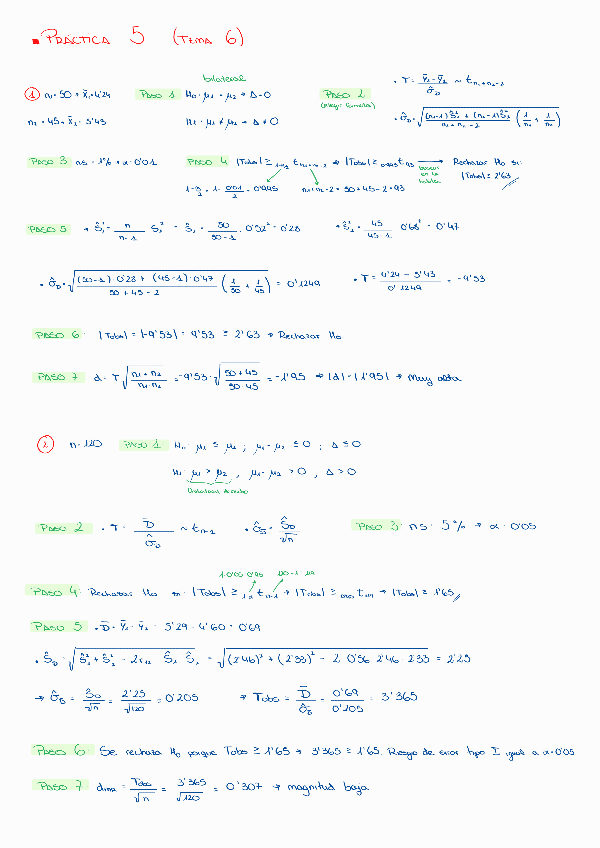 • PRÁCTICA 5 (TEMA 6)
bilateral
① n₁=50 → x̄₁=4'24 PASO 1 H₀: μ₁ = μ₂ → Δ=0 PASO 2 • T = (Ȳ₁-Ȳ₂)/σ̂_D̄ ~ t n₁+n₂-2
n₂=45 → x̄₂=5'43 H₁: μ₁ ≠ μ₂ → Δ ≠ 0 • σ̂_D̄ = √(((n₁-1)Ŝ₁² + (n₂-1)Ŝ₂²)/(n₁+n₂-2) (1/n₁ + 1/n₂))
PASO 3 ns = 1% → α=0'01 PASO 4 |Tobs| ≥ 1-α/2 t n₁+n₂-2 → |Tobs| ≥ 0'995 t 93 → Rechazar H₀ si:
buscar en la tabla
|Tobs| ≥ 2'63
1-α/2 = 1- 0'01/2 = 0'995 n₁+n₂-2 = 50+45-2 = 93
PASO 5 → Ŝ₁² = n/(n-1) S₁² = Ŝ₁ = 50/(50-1) · 0'52² = 0'28 → Ŝ₂² = 45/(45-1) 0'68² = 0'47
• σ̂_D̄ = √(((50-1)·0'28 + (45-1)·0'47)/(50+45-2) (1/50 + 1/45)) = 0'1249 • T = (4'24 - 5'43)/0'1249 = -9'53
PASO 6: |Tobs| = |-9'53| = 9'53 ≥ 2'63 → Rechazar H₀
PASO 7 d = T √((n₁+n₂)/(n₁·n₂)) = -9'53 · √((50+45)/(50·45)) = -1'95 → |d| = |1'95| → Muy alta
② n=120 PASO 1 H₀: μ₁ ≤ μ₂ ; μ₁-μ₂ ≤ 0 ; Δ ≤ 0
H₁: μ₁ > μ₂ , μ₁-μ₂ > 0 , Δ > 0
PASO 2 • T = D̄/σ̂_D̄ ~ t n-1 • σ̂_D̄ = Ŝ_D/√n PASO 3: ns: 5% → α=0'05
1-0'05=0'95 120-1=119
PASO 4: Rechazar H₀ si: |Tobs| ≥ 1-α t n-1 → |Tobs| ≥ 0'95 t 119 → |Tobs| ≥ 1'65
PASO 5: • D̄ = Ȳ₁ - Ȳ₂ = 5'29 - 4'60 = 0'69
• Ŝ_D = √(Ŝ₁² + Ŝ₂² - 2r₁₂ Ŝ₁ Ŝ₂) = √((2'46)² + (2'33)² - 2·0'56·2'46·2'33) = 2'25
→ σ̂_D̄ = Ŝ_D/√n = 2'25/√120 = 0'205 → Tobs = D̄/σ̂_D̄ = 0'69/0'205 = 3'365
PASO 6: Se rechaza H₀ porque Tobs ≥ 1'65 → 3'365 ≥ 1'65. Riesgo de error tipo I igual a α=0'05
PASO 7 = Tobs/√n = 3'365/√120 = 0'307 → magnitud baja